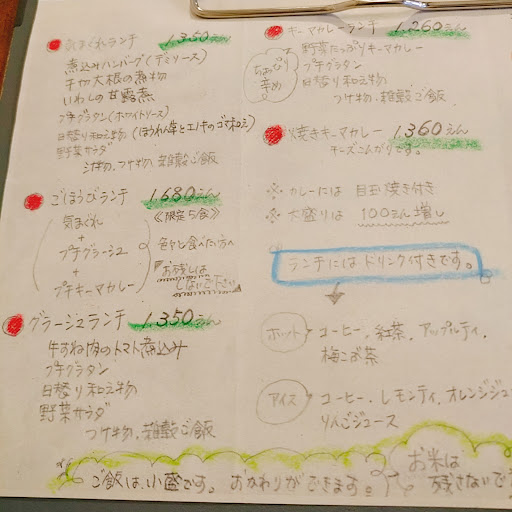 気まぐれランチ 1,350えん
煮込みハンバーグ(デミソース)
切干大根の煮物
いわしの甘露煮
プチグラタン(ホワイトソース)
日替り和え物(ほうれん草とエノキのゴマ和え)
野菜サラダ
汁物、つけ物、雑穀ご飯
ごほうびランチ 1,680えん
《限定5食》
気まぐれ
+
プチグラージュ
+
プチキーマカレー
色々と食べたい方へ
お残しは
しないで下さい
グラージュランチ 1,350えん
牛すね肉のトマト煮込み
プチグラタン
日替り和え物
野菜サラダ
つけ物、雑穀ご飯
キーマカレーランチ 1,260えん
ちょっぴり
辛め
野菜たっぷりキーマカレー
プチグラタン
日替り和え物
つけ物、雑穀ご飯
焼きキーマカレー 1,360えん
チーズこんがりです。
※ カレーには 目玉焼き付き
※ 大盛りは 100えん増し
ランチにはドリンク付きです。
ホット コーヒー、紅茶、アップルティ、
梅こぶ茶
アイス コーヒー、レモンティ、オレンジジュ
りんごジュース
ご飯は、小盛です。おかわりができます。
お米は
残さないで